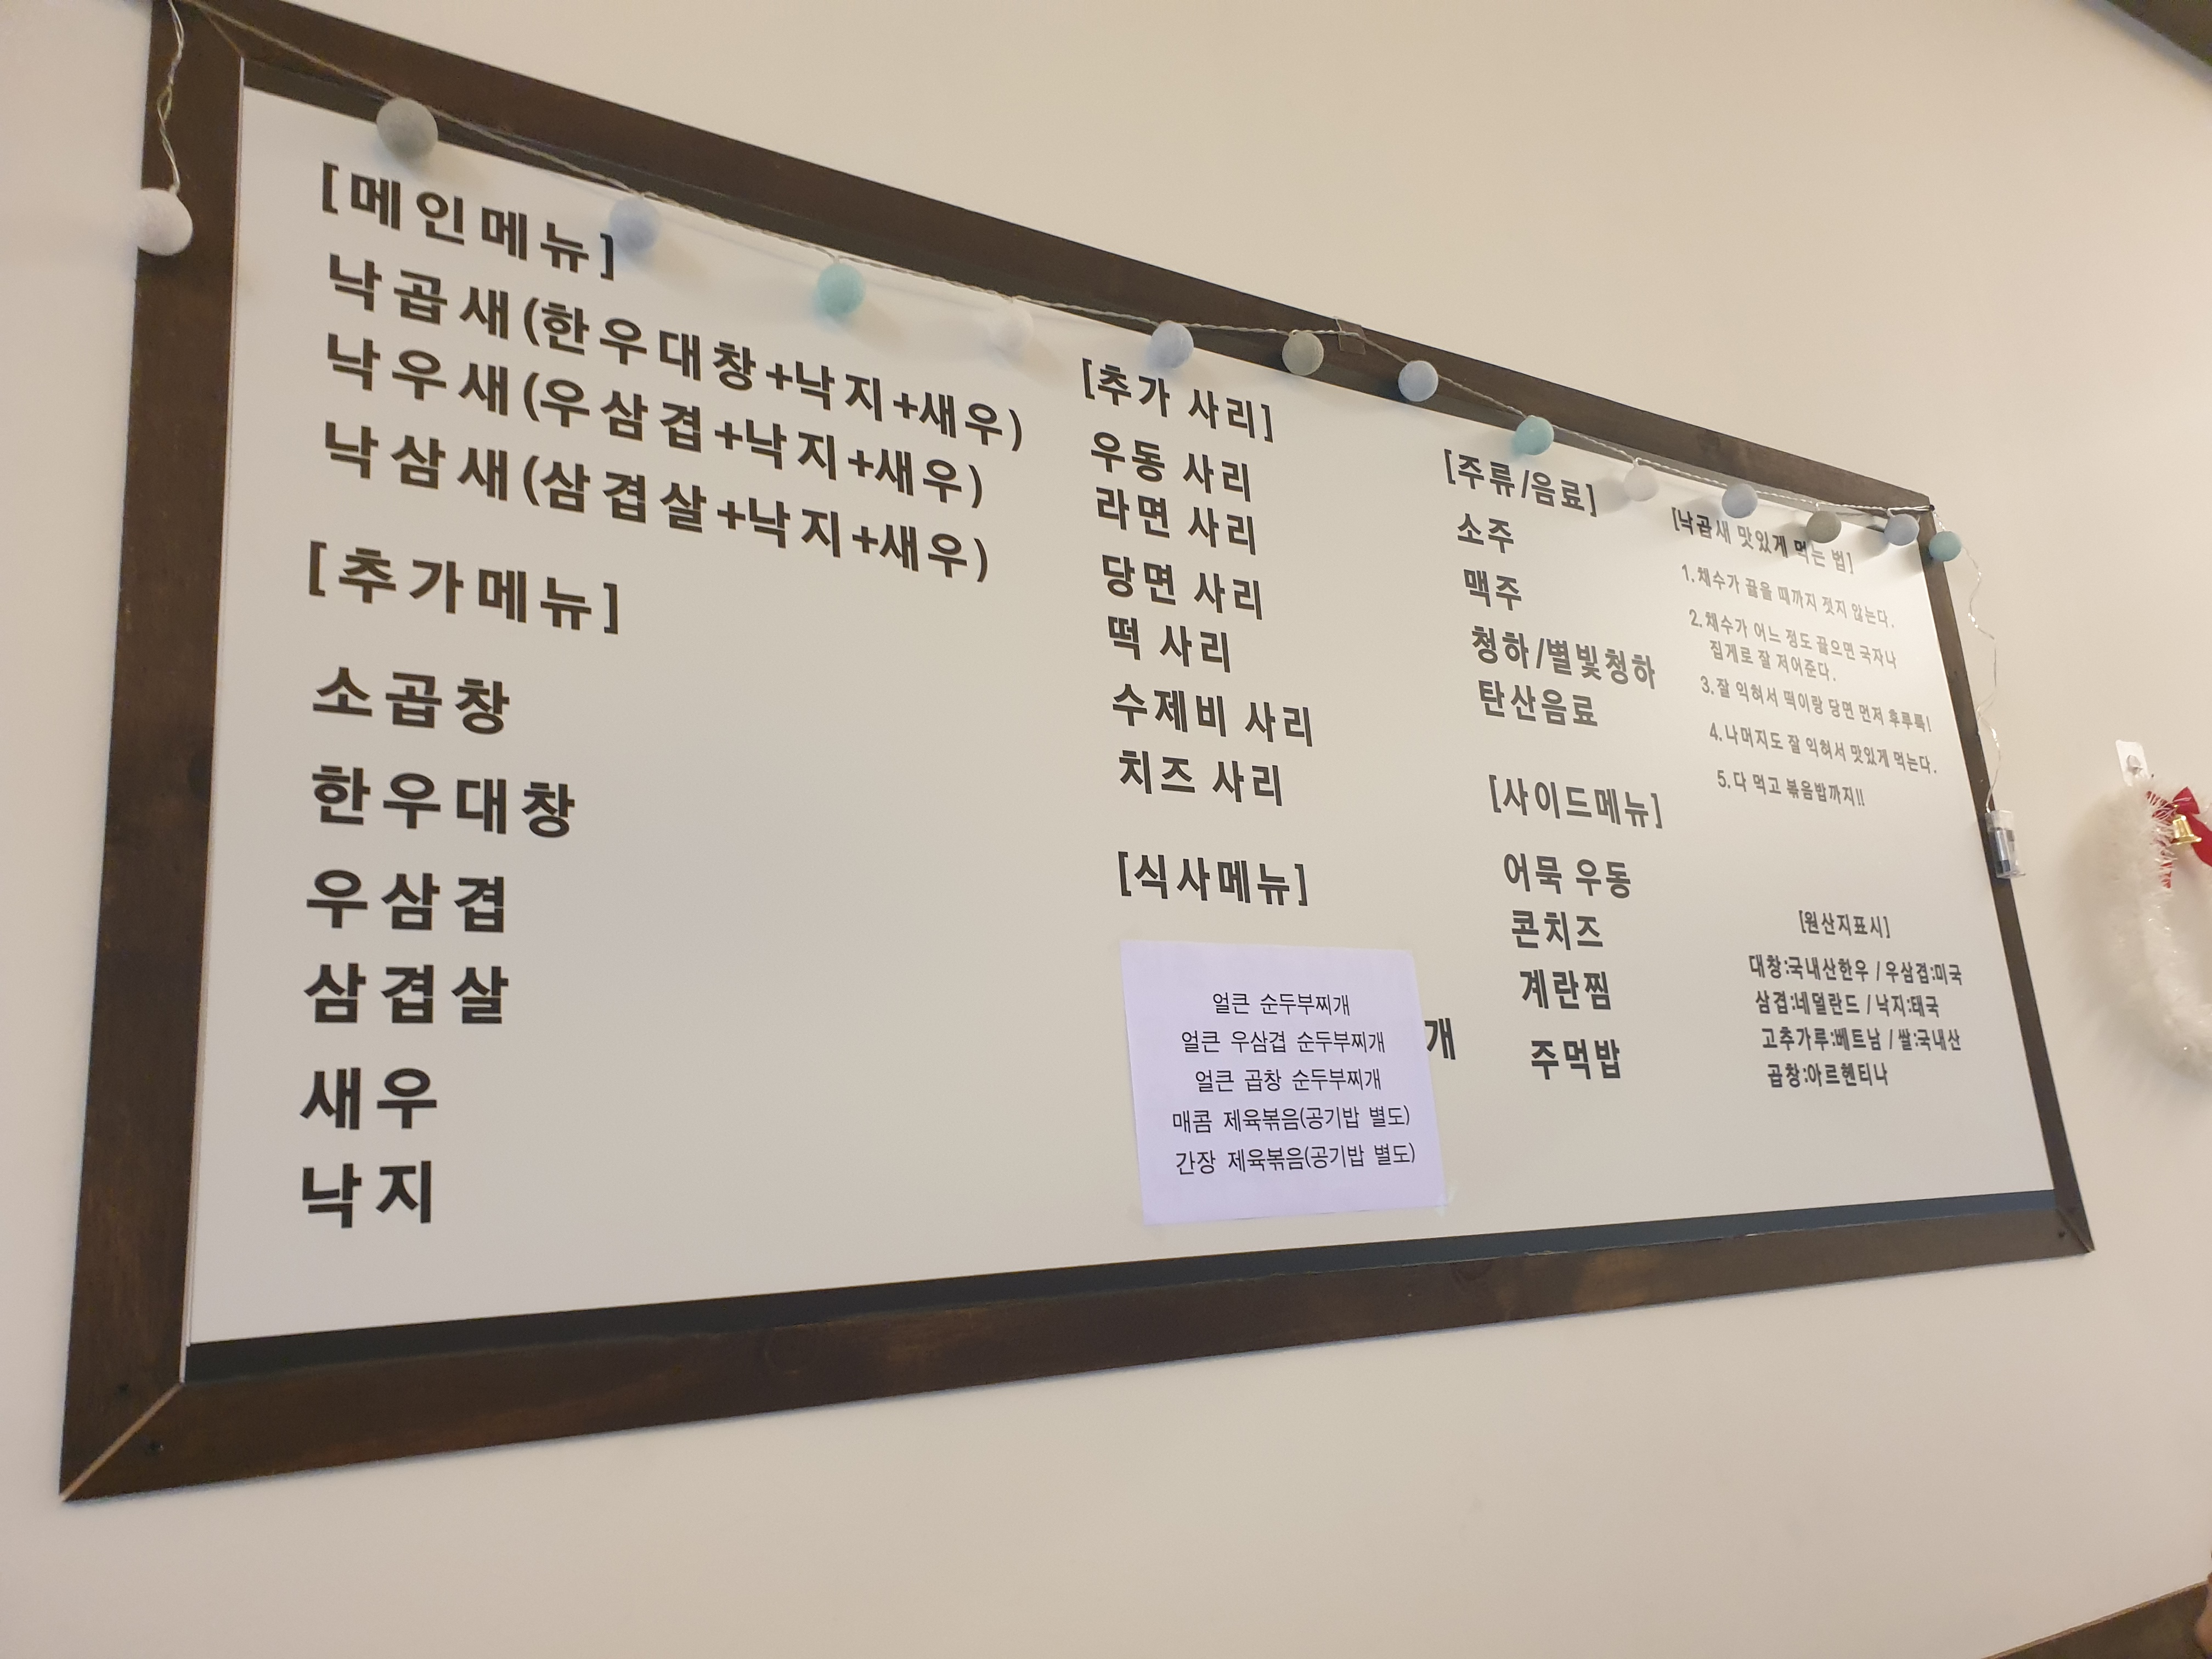 [메인메뉴]
낙곱새(한우대창+낙지+새우)
낙우새(우삼겹+낙지+새우)
낙삼새(삼겹살+낙지+새우)
[추가메뉴]
소곱창
한우대창
우삼겹
삼겹살
새우
낙지
[추가 사리]
우동 사리
라면 사리
당면 사리
떡 사리
수제비 사리
치즈 사리
[식사메뉴]
얼큰 순두부찌개
얼큰 우삼겹 순두부찌개
얼큰 곱창 순두부찌개
매콤 제육볶음(공기밥 별도)
간장 제육볶음(공기밥 별도)
개
[주류/음료]
소주
맥주
청하/별빛청하
탄산음료
[사이드메뉴]
어묵 우동
콘치즈
계란찜
주먹밥
[낙곱새 맛있게 먹는 법]
1.채수가 끓을 때까지 젓지 않는다.
2.채수가 어느 정도 끓으면 국자나
집게로 잘 저어준다.
3.잘 익혀서 떡이랑 당면 먼저 후루룩!
4.나머지도 잘 익혀서 맛있게 먹는다.
5.다 먹고 볶음밥까지!!
[원산지표시]
대창:국내산한우 / 우삼겹:미국
삼겹:네덜란드 / 낙지:태국
고추가루:베트남 / 쌀:국내산
곱창:아르헨티나